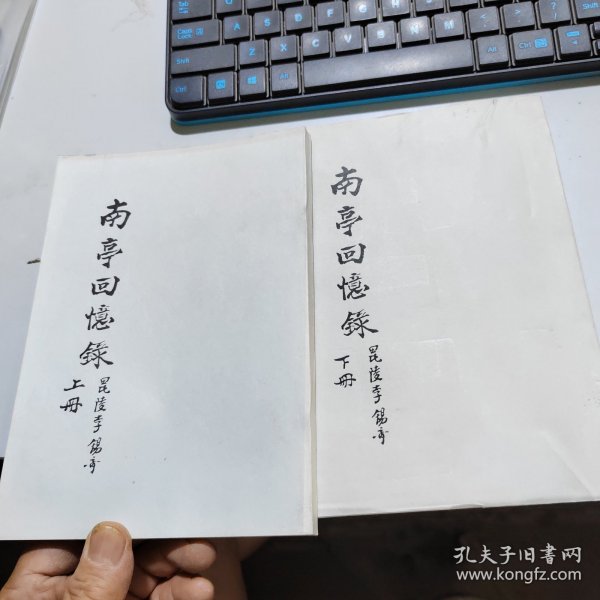 南亭回憶錄
上冊
昆陵李錫
南亭回憶錄
下冊
昆陵李錫
Tab
Caps Lock
Shift
Ctrl
Alt
A
S
D
F
G
H
J
K
L
Z
X
C
V
B
N
M
Alt
Ctrl
Shift
孔夫子旧書网
www.kongfz.com